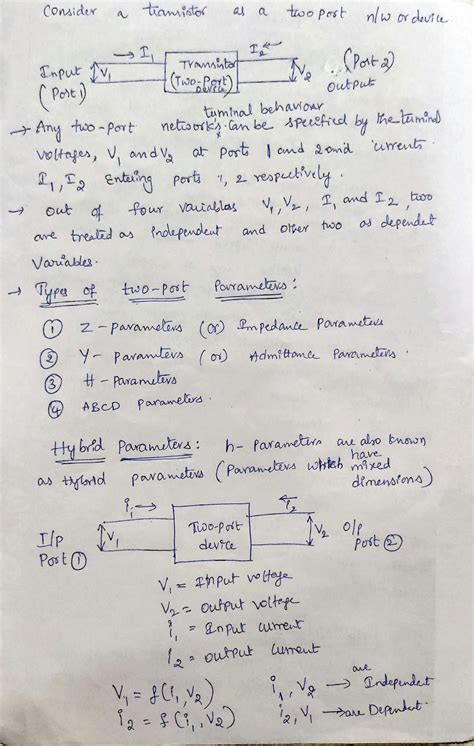 Consider a transistor as a two port n/w or device
→ I1 I2 ←
Input (Port 1) V1 Transistor (Two-Port) device V2 (Port 2) output
terminal behaviour
→ Any two-port network's can be specified by the terminal
voltages, V1 and V2 at ports 1 and 2 and currents
I1, I2 Entering ports 1, 2 respectively.
→ out of four variables V1, V2, I1 and I2, two
are treated as Independent and other two as dependent
Variables.
→ Types of two-port Parameters:
① Z - parameters (or) Impedance Parameters
② Y - parameters (or) Admittance Parameters.
③ H - Parameters
④ ABCD Parameters.
Hybrid Parameters: h- Parameters are also known
as Hybrid parameters (Parameters which have mixed
dimensions)
i1 → ← i2
I/p Port ① V1 Two-port device V2 O/p port ②
V1 = Input voltage
V2 = output voltage
i1 = Input current
i2 = output current
V1 = f(i1, V2) i1, V2 → are Independent
i2 = f(i1, V2) i2, V1 → are Dependent.